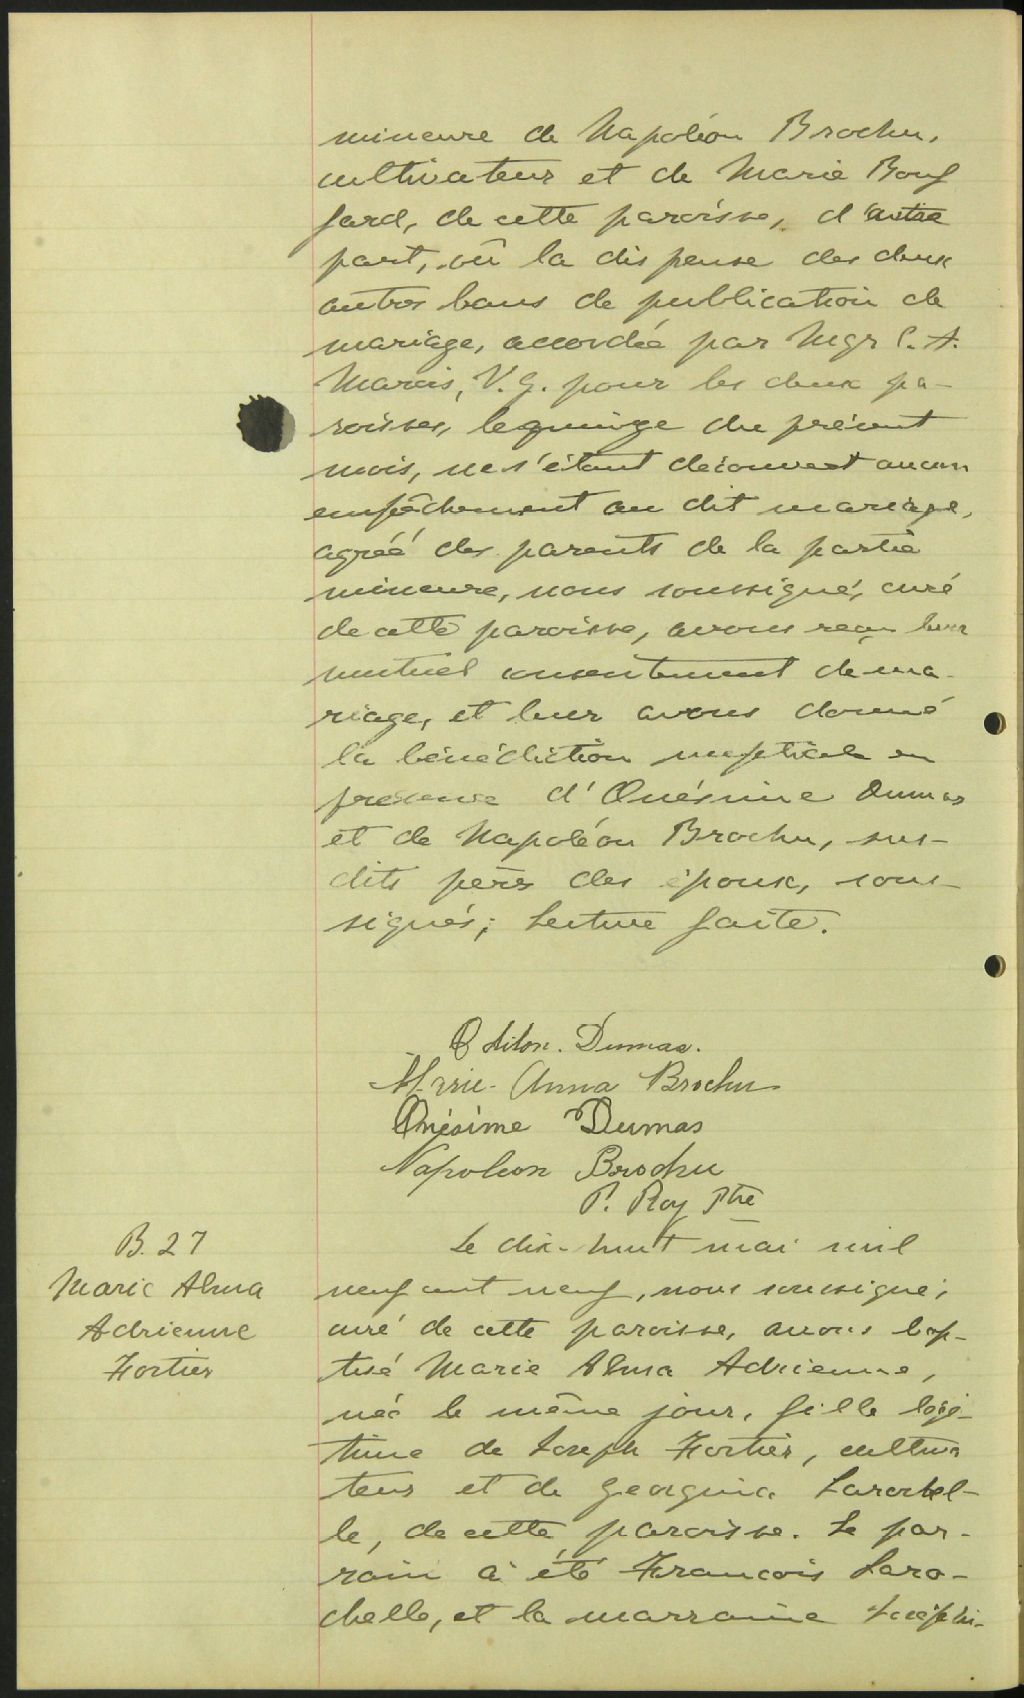 mineure de Napoléon Brochu,
cultivateur et de Marie Bouf
fard, de cette paroisse, d'autre
part, vû la dispense des deux
autres bans de publication de
mariage, accordée par Mgr C. A.
Marois, V. G. pour les deux pa-
roisses, le quinze du présent
mois, ne s'étant découvert aucun
empêchement au dit mariage,
agréé des parents de la partie
mineure, nous soussigné, curé
de cette paroisse, avons reçu leur
mutuel consentement de ma-
riage, et leur avons donné
la bénédiction nuptiale en
présence d'Onésime Dumas
et de Napoléon Brochu, sus-
dits pères des époux, sous-
signés; lecture faite.
Odilon. Dumas.
Marie-Anna Brochu
Onésime Dumas
Napoleon Brochu
P. Roy Ptre
B. 27
Marie Alma
Adrienne
Fortier
Le dix-huit mai mil
neuf cent neuf, nous soussigné,
curé de cette paroisse, avons bap-
tisé Marie Alma Adrienne,
née le même jour, fille légi-
time de Joseph Fortier, cultiva
teur et de Georgina Larochel-
le, de cette paroisse. Le par-
rain a été François Laro-
chelle, et la marraine